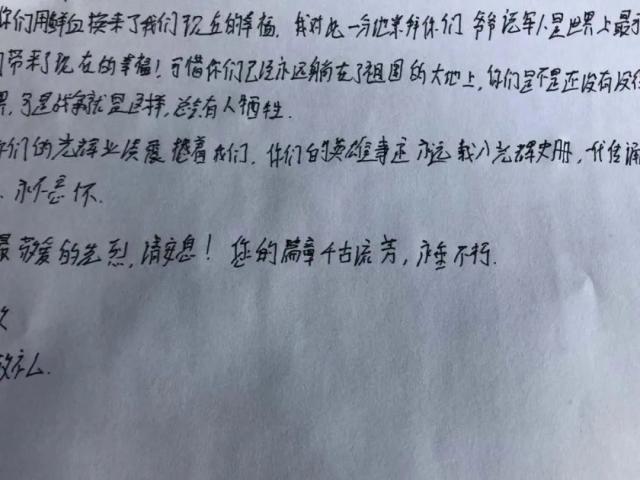 你们用鲜血换来了我们现在的幸福，我对此一分地崇拜你们 爷爷说军人是世界上最可
们带来了现在的幸福！可惜你们已经永远躺在了祖国的大地上，你们是不是还没有没
果，可是战争就是这样，总会有人牺牲.
你们的光辉业绩 我们，你们的英雄事迹 永远载入光辉史册，代传诵
永不忘怀.
最敬爱的先烈，请安息！您的篇章千古流芳，永垂不朽.
致礼.